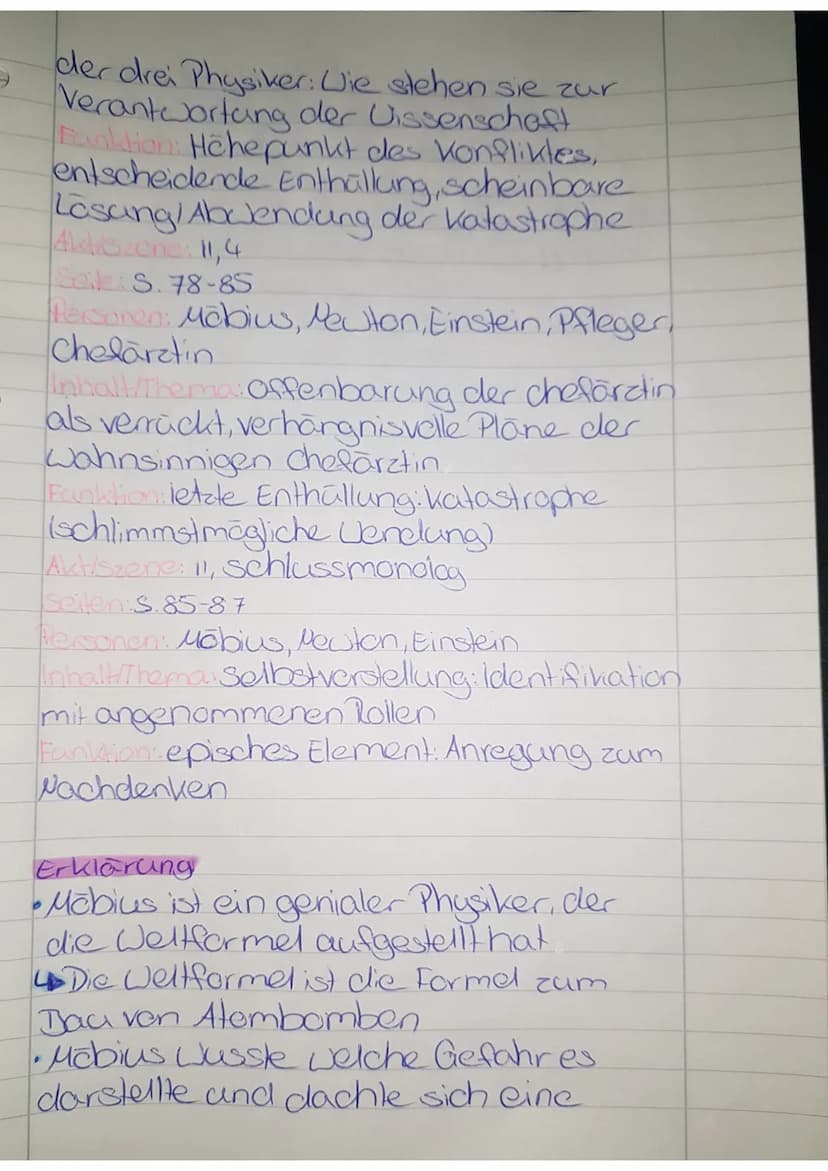 der drei Physiker: Wie stehen sie zur
Verantwortung der Wissenschaft
Funktion: Höhepunkt des Konfliktes,
entscheidende Enthüllung, scheinbare
Lösung/Abwendung der Katastrophe
Akt/Szene: 11,4
Seite: S. 78-85
Personen: Möbius, Newton, Einstein, Pfleger,
Chefärztin
Inhalt/Thema: Offenbarung der Chefärztin
als verrückt, verhängnisvolle Pläne der
wahnsinnigen Chefärztin
Funktion: letzte Enthüllung: Katastrophe
(schlimmstmögliche Wendung)
Akt/Szene: 11, Schlussmonolog
Seiten: S. 85-87
Personen: Möbius, Newton, Einstein
Inhalt/Thema: Selbstvorstellung: Identifikation
mit angenommenen Rollen
Funktion: episches Element: Anregung zum
Nachdenken
Erklärung
• Möbius ist ein genialer Physiker, der
die Weltformel aufgestellt hat
↳ Die Weltformel ist die Formel zum
Bau von Atombomben
• Möbius wusste welche Gefahr es
darstellte und dachte sich eine